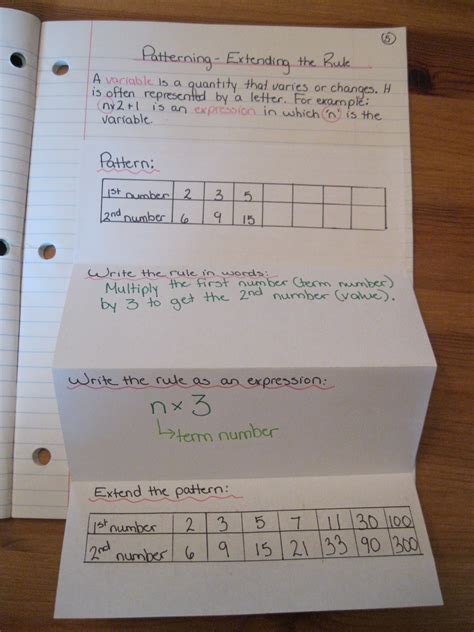 5
Patterning - Extending the Rule
A variable is a quantity that varies or changes. It
is often represented by a letter. For example:
(n×2+1 is an expression in which 'n' is the
variable.
Pattern:
1st number 2 3 5
2nd number 6 9 15
Write the rule in words:
Multiply the first number (term number)
by 3 to get the 2nd number (value).
Write the rule as an expression:
n × 3
↳term number
Extend the pattern:
1st number 2 3 5 7 11 30 100
2nd number 6 9 15 21 33 90 300